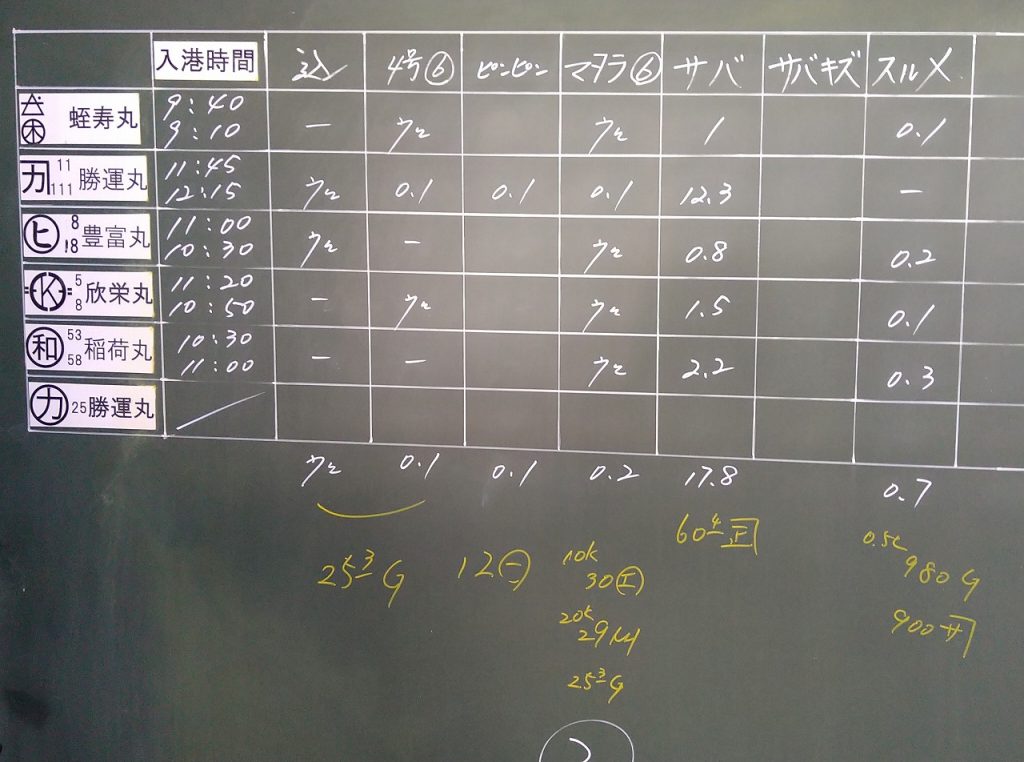 入港時間 込 4号⑥ ピンピン マタラ⑥ サバ サバキズ スルメ
蛭寿丸 9:40 9:10 — ウx ウx 1 0.1
カ 11 111 勝運丸 11:45 12:15 ウx 0.1 0.1 0.1 12.3 —
ヒ 8 18 豊富丸 11:00 10:30 ウx — ウx 0.8 0.2
K 5 8 欣栄丸 11:20 10:50 — ウx ウx 1.5 0.1
和 53 58 稲荷丸 10:30 11:00 — — ウx 2.2 0.3
カ 25 勝運丸
ウx 0.1 0.1 0.2 17.8 0.7
60 4 正
25 3 G
12 ㊀
10k
30
20k
29
25 3 G
0.5t
980 G
900 サ